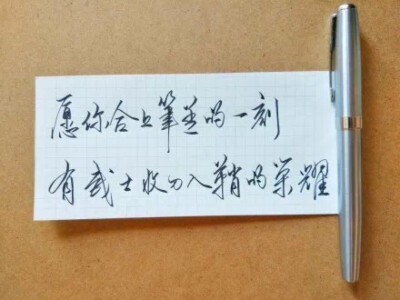 愿你合上筆盖的一刻
有武士收刀入鞘的荣耀